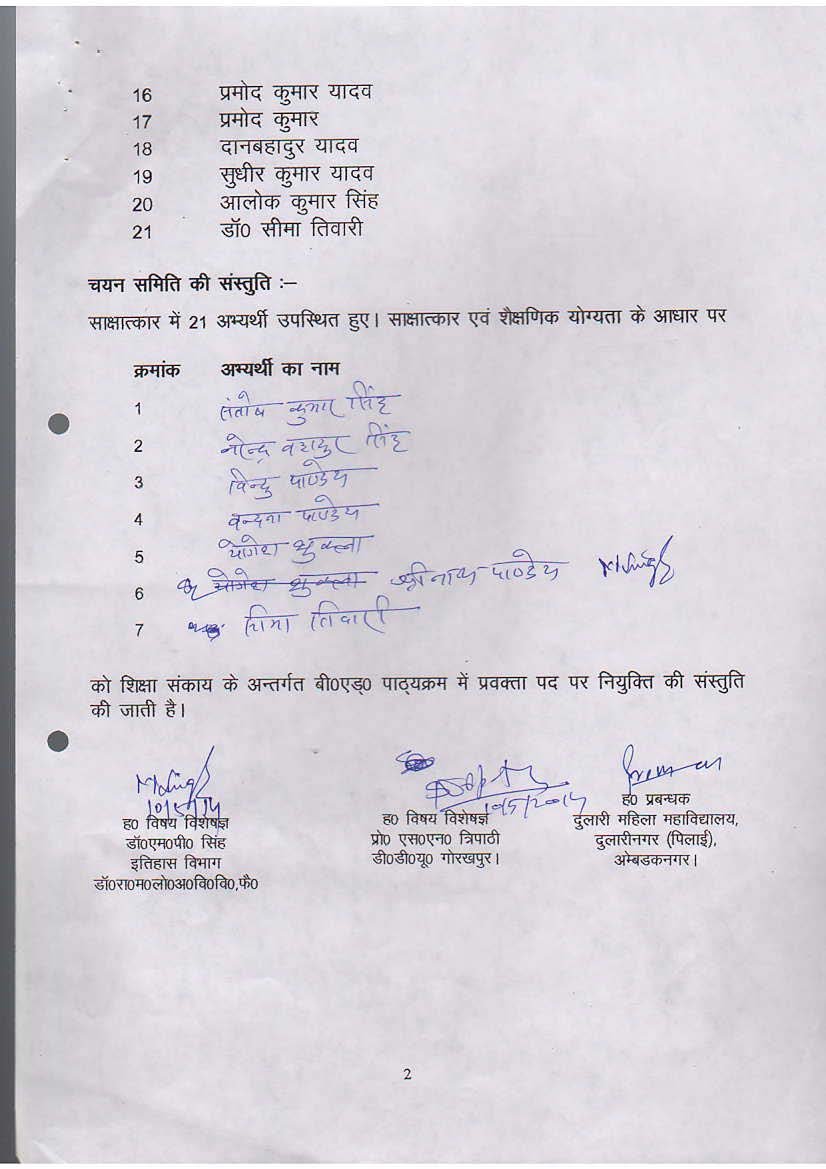 16 प्रमोद कुमार यादव
17 प्रमोद कुमार
18 दानबहादुर यादव
19 सुधीर कुमार यादव
20 आलोक कुमार सिंह
21 डॉ0 सीमा तिवारी
चयन समिति की संस्तुति :–
साक्षात्कार में 21 अभ्यर्थी उपस्थित हुए। साक्षात्कार एवं शैक्षणिक योग्यता के आधार पर
क्रमांक अभ्यर्थी का नाम
1 संतोष कुमार सिंह
2 नरेन्द्र बहादुर सिंह
3 विन्दु पाण्डेय
4 वन्दना पाण्डेय
5 योगेश शुक्ला
6 योगेश शुक्ला श्रीनाथ पाण्डेय
7 सिमा तिवारी
को शिक्षा संकाय के अन्तर्गत बी0एड्0 पाठ्यक्रम में प्रवक्ता पद पर नियुक्ति की संस्तुति
की जाती है।
10/5/14 10/5/2014
ह0 विषय विशेषज्ञ ह0 विषय विशेषज्ञ ह0 प्रबन्धक
डॉ0एम0पी0 सिंह प्रो0 एस0एन0 त्रिपाठी दुलारी महिला महाविद्यालय,
इतिहास विभाग डी0डी0यू0 गोरखपुर। दुलारीनगर (पिलाई),
डॉ0रा0म0लो0अ0वि0वि0,फै0 अम्बेडकनगर।
2